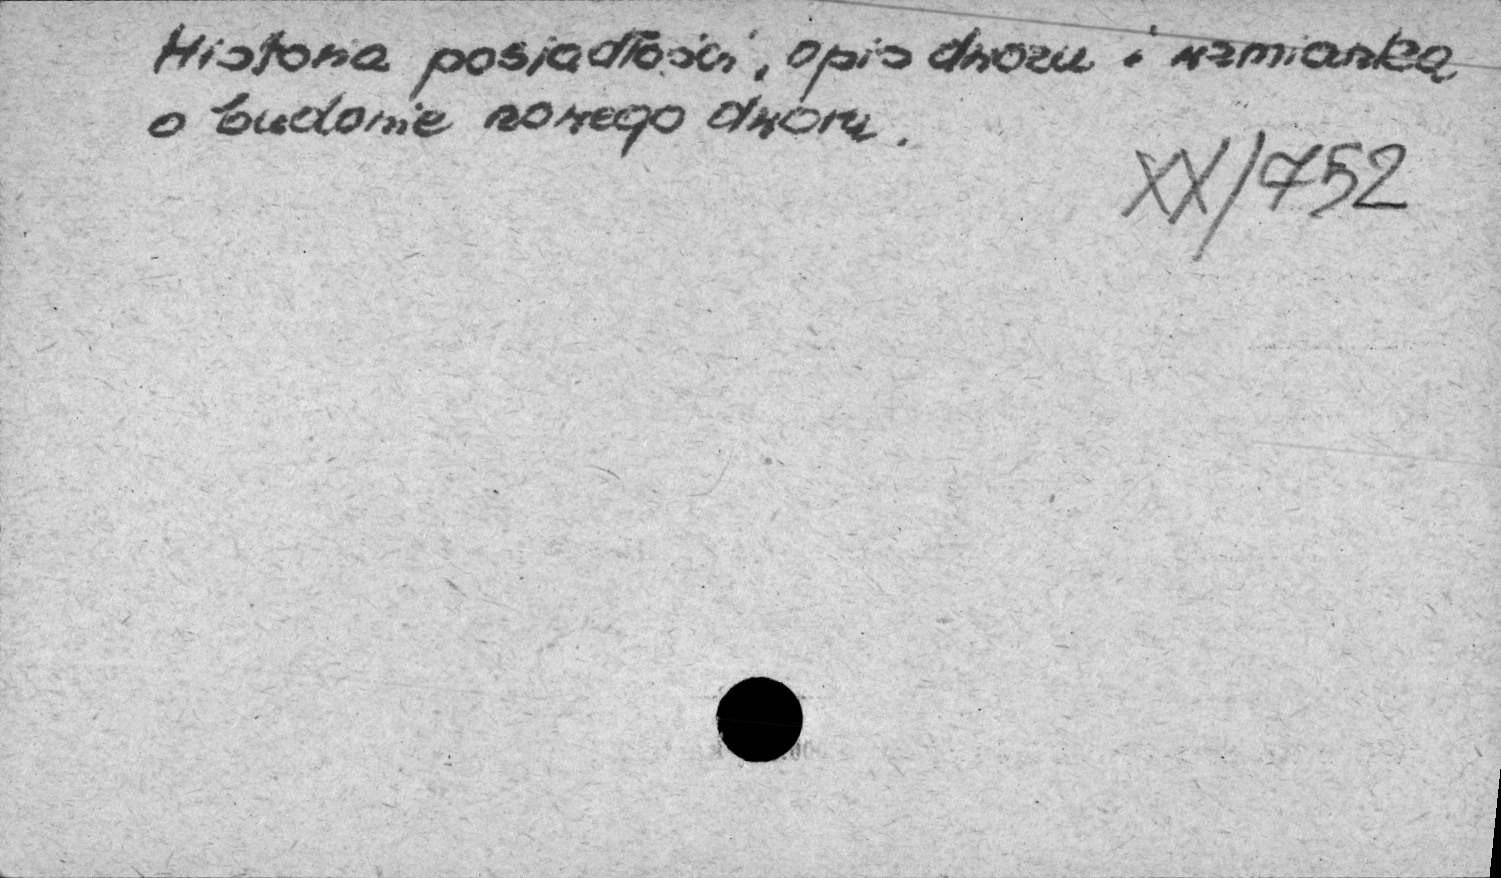 Historia posiadłości, opis dworu i wzmianka
o budowie nowego dworu.
XX/752